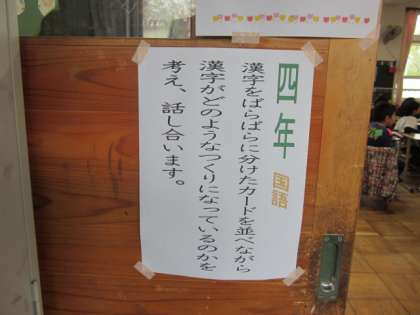 四年 国語
漢字をばらばらに分けたカードを並べながら
漢字がどのようなつくりになっているのかを
考え、話し合います。